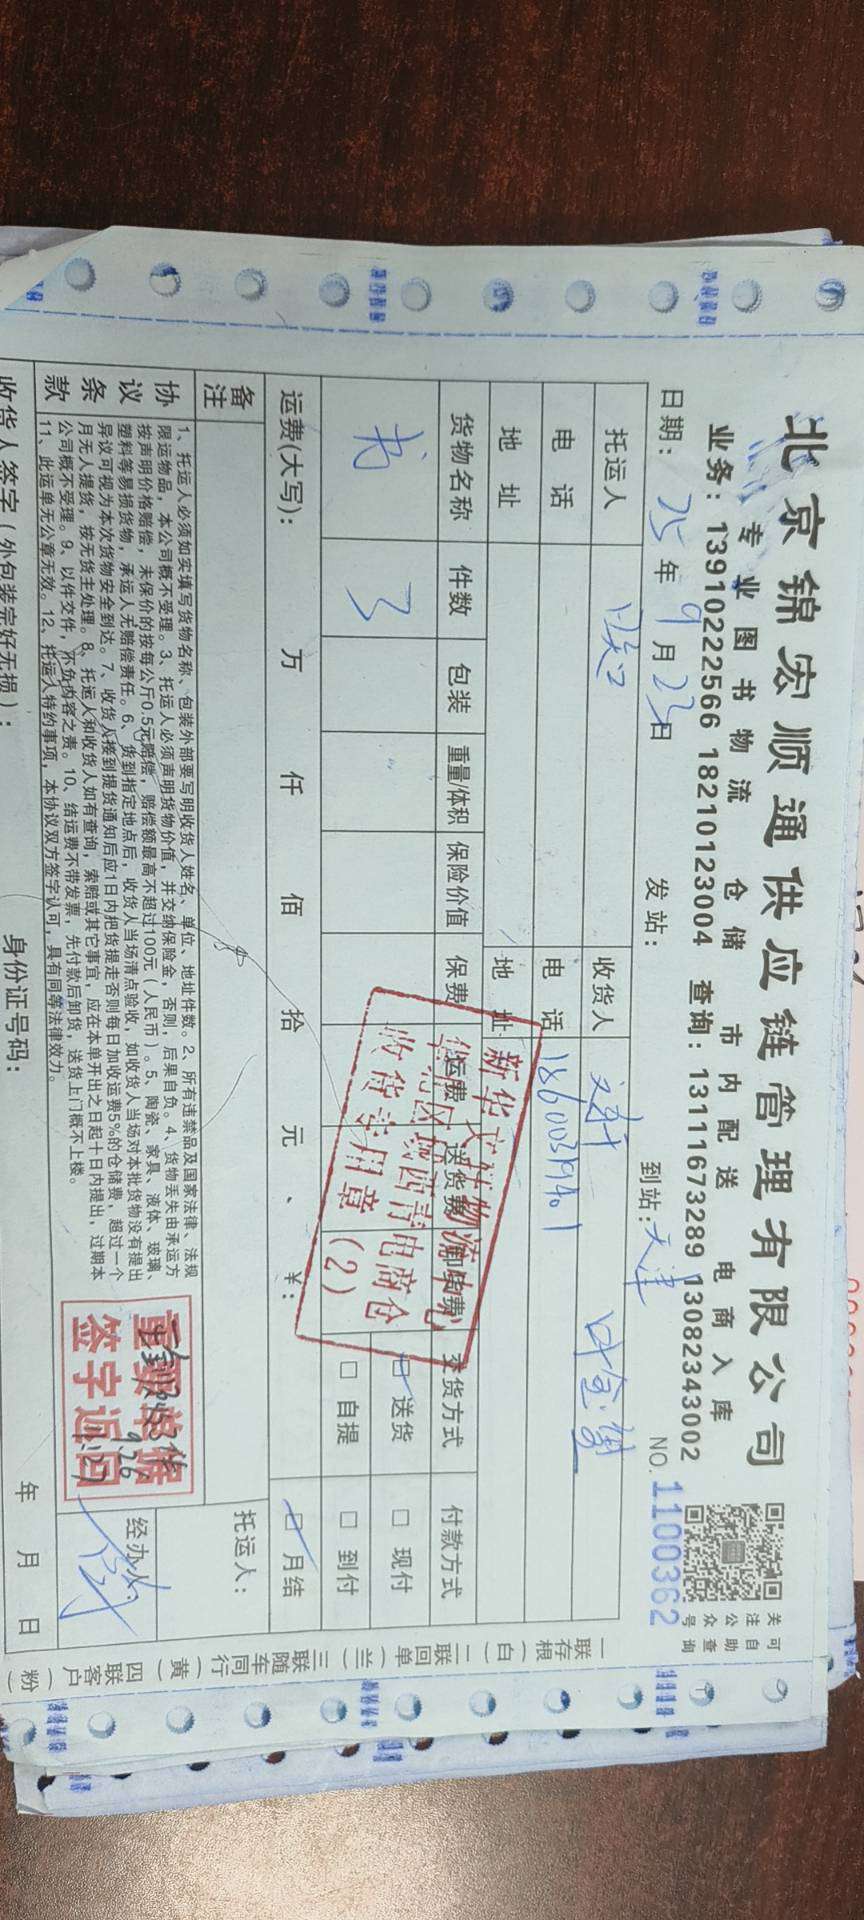 北京锦宏顺通供应链管理有限公司
专业图书物流 仓储 市内配送 电商入库
业务：13910222566 18210123004 查询：13111673289 13082343002
关注公众号
可自助查询
日期：25年9月23日 发站： 到站：天津 NO.1100362
托运人 收货人 文轩
电话 电话 18600319401
地址 地址
货物名称 件数 包装 重量/体积 保险价值 保费 运费 送货费 卸货费 交货方式 付款方式
书 3 □送货 □现付
□自提 □到付
运费(大写)： 万 仟 佰 拾 元、¥： □月结
备注
托运人：
协议条款
1、托运人必须如实填写货物名称、包装外部要写明收货人姓名、单位、地址件数。2、所有违禁品及国家法律、法规
限运物品，本公司概不受理。3、托运人必须声明货物价值，并交纳保险金，否则，后果自负。4、货物丢失由承运方
按声明价格赔偿，未保价的按每公斤0.5元赔偿，赔偿额最高不超过100元（人民币）。5、陶瓷、家具、液体、玻璃、
塑料等易损货物，承运人无赔偿责任。6、货到指定地点后，收货人当场清点验收，如收货人当场对本批货物没有提出
异议可视为本次货物安全到达。7、收货人接到提货通知后应1日内把货提走否则每日加收运费5%的仓储费，超过一个
月无人提货，按无货主处理。8、托运人和收货人如有查询，索赔或其它事宜，应在本单开出之日起十日内提出，过期本
公司概不受理。9、以件交件，不负内容之责。10、结运费不带发票，先付款后卸货，送货上门概不上楼。
11、此运单无公章无效。12、托运人特约事项，本协议双方签字认可，具有同等法律效力。
经办人：
收货人签字（外包装完好无损）： 身份证号码： 年 月 日
一联存根（白） 二联回单（兰） 三联随车同行（黄） 四联客户（粉
新华文轩物流中心
华北区域西青电商仓
收货专用章
（2）
重要单据
签字返回
9.26